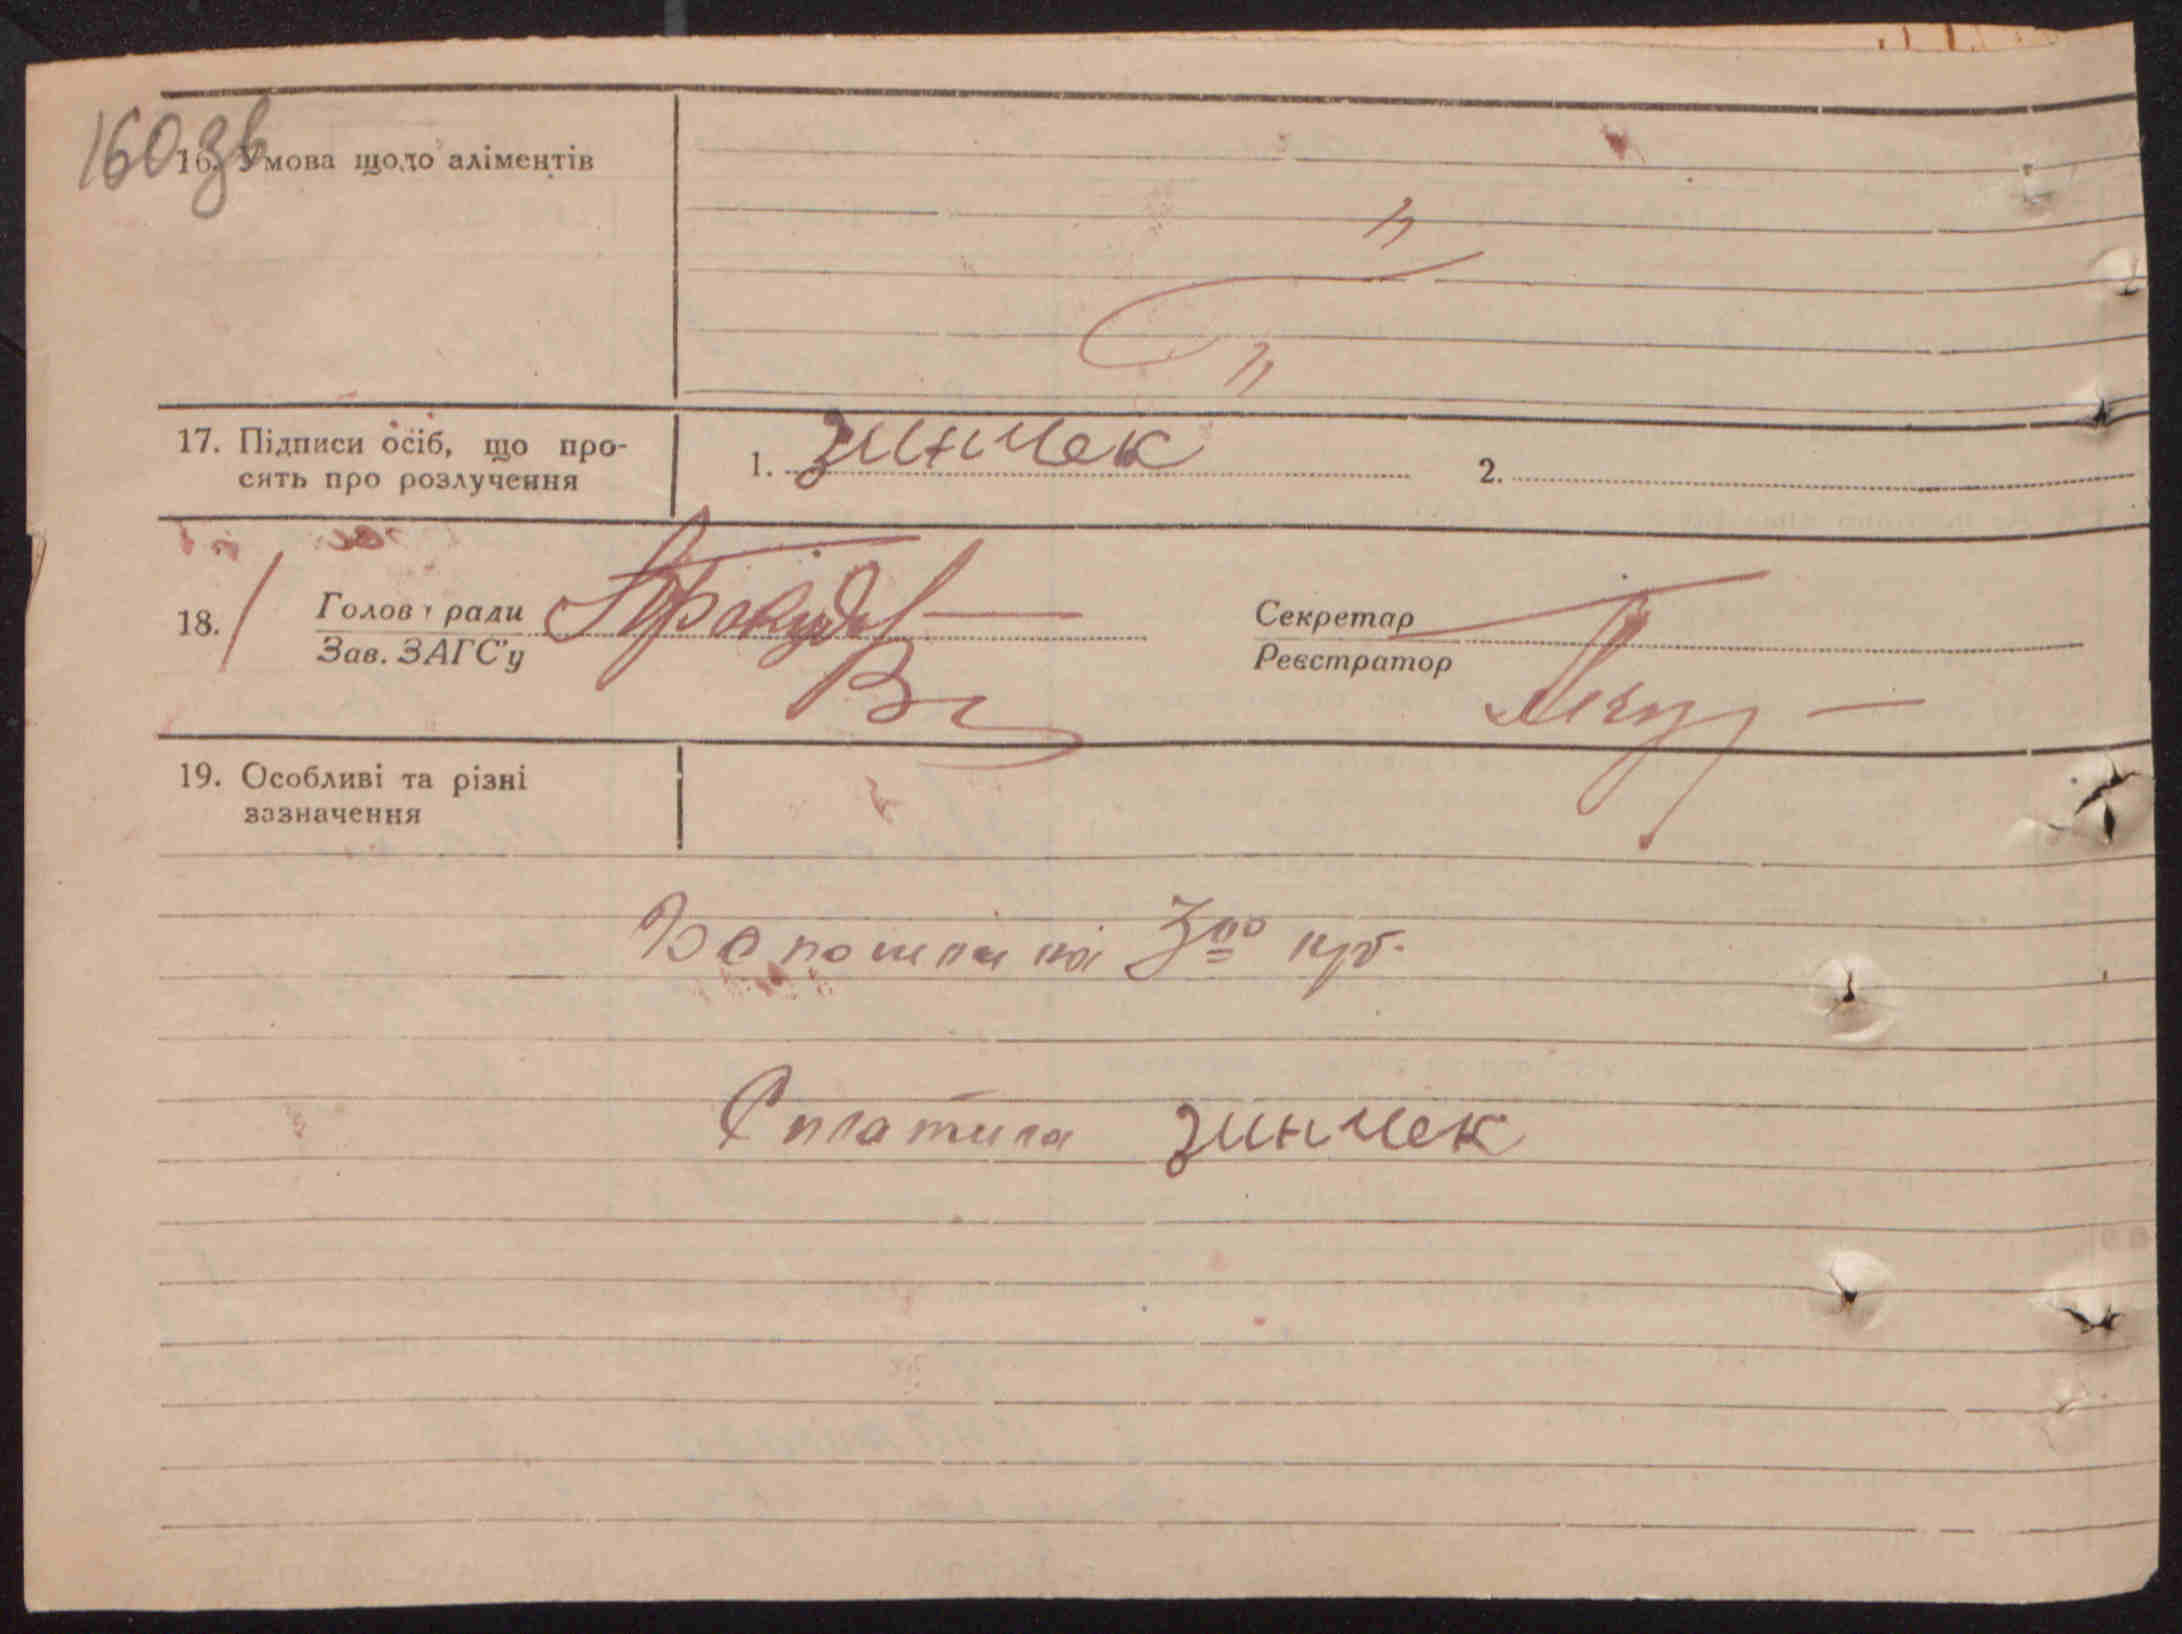 160зв
16. Умова щодо аліментів
" — "
17. Підписи осіб, що про-
сять про розлучення
1. Зинчек 2.
18. Голова ради Секретар
Зав. ЗАГС'у Реєстратор
19. Особливі та різні
зазначення
3 00 крб.
Сплатила Зинчек